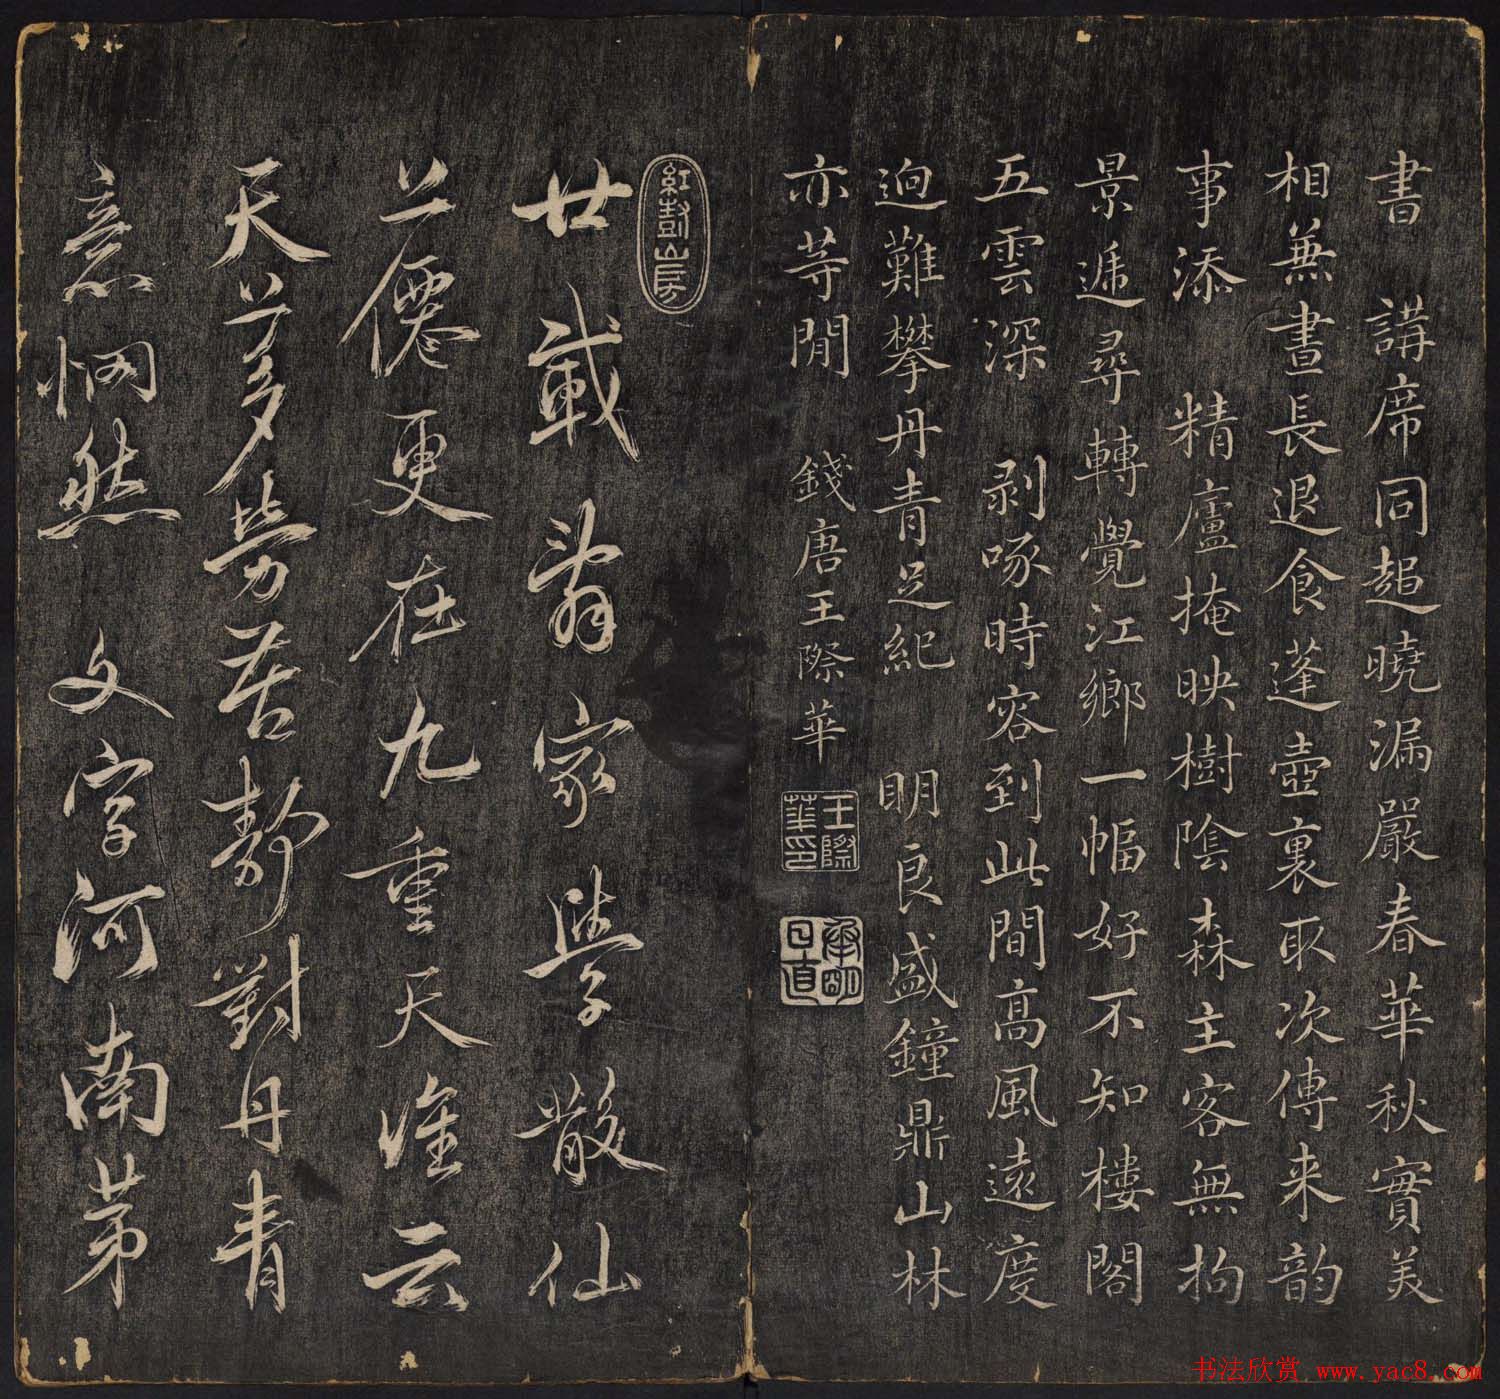 書 講席同趨曉漏嚴春華秋實美
相兼晝長退食蓬壺裏取次傳来韵
事添 精廬掩映樹陰森主客無拘
景遞尋轉覺江鄉一幅好不知樓閣
五雲深 剥啄時容到此間高風遠度
迥難攀丹青足紀 明良盛鐘鼎山林
亦等閒 錢唐王際華
王際華印
紅封山房
廿載翁家學散仙
上僊更在九重天淮云
天苦多勞居静對丹青
意惘然 文字河南第
书法欣赏 www.yac8.com